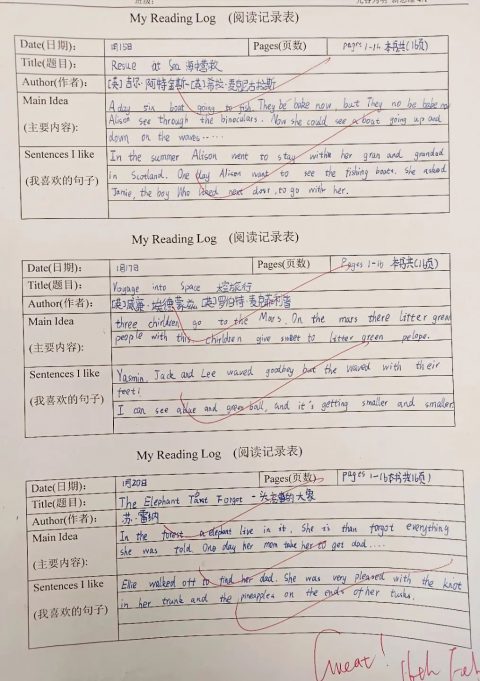 My Reading Log (阅读记录表)
Date(日期): 1月15日 Pages(页数) pages 1-16 本书共(16页)
Title(题目): Resiue at Sea 海中营救
Author(作者): [英]
Main Idea A day sin boat going to fish. They be bake now, but They no be bake now
(主要内容): Alison see through the binoculars. Now she could see a boat going up and
down on the waves......
Sentences I like In the summer Alison went to stay withe her gran and grandad
(我喜欢的句子) in Scotland. One day Alison want to see the fishing boats. She asked
Jamie, the boy who lived next door, to go with her.
My Reading Log (阅读记录表)
Date(日期): 1月17日 Pages(页数) Pages 1-16 本书共(16页)
Title(题目): Voyage into Space 太空旅行
Author(作者): [英]威廉·
Main Idea three chirldren go to the Mars. On the mars there litter green
(主要内容): people with this chirldren give sweet to litter green pelope.
Sentences I like Yasmin, Jack and Lee waved goodbey but the waved with their
(我喜欢的句子) feeti
I can see a blue and green ball, and it's getting smaller and smaller.
My Reading Log (阅读记录表)
Date(日期): 1月20日 Pages(页数) pages 1-16本书共16页)
Title(题目): The Elephant Tant Forgot - 的大象
Author(作者): 苏·雷纳
Main Idea In the forest a elephant live in it, She is than forgot everything
(主要内容): she was told. One day her mom take her to get dad....
Sentences I like Ellie walked off to find her dad. She was very pleased with the knot
(我喜欢的句子) in her trunk and the pineapples on the ends of her tusks.
Great!